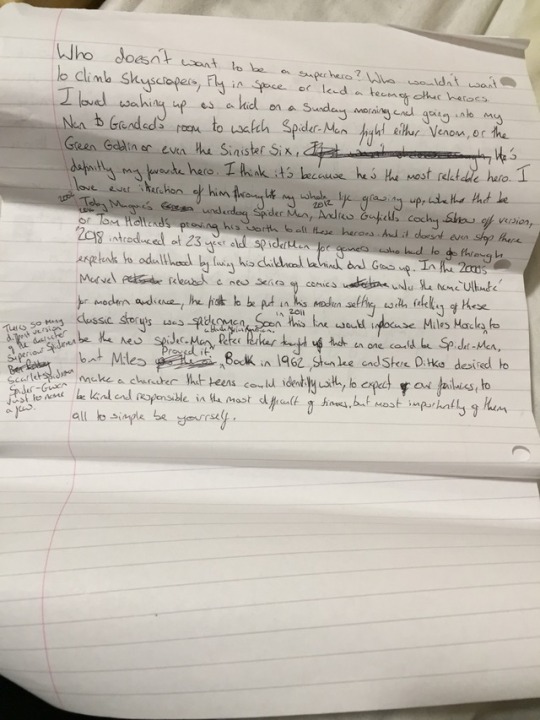 Who doesn't want to be a superhero? Who wouldn't want
to climb skyscrapers, Fly in Space or lead a team of other heroes.
I loved waking up as a kid on a Sunday morning and going into my
Nan & Grandad's room to watch Spider-Man fight either Venom, or the
Green Goblin or even the Sinister Six, He's
definitly my favourite hero. I think it's because he's the most relatable hero. I
love ever iterchon of him throught my whole life growing up, whether that be
Toby Maguire's underdog Spider Man, Andrew Garfields cocky show off version,
2012
or Tom Holland's proving his worth to all these heroes. And it doesn't even stop there
2018 introduced at 23 year old spiderman for gamers who had to go through
to adulthood by living his childhood behind and Grow up. In the 2000s
Marvel released a new series of comics under the name Ultimate
for modern audience, the first to be put in this modern setting with retelling of these
in 2011
classic storys was spiderman. Soon this line would introduce Miles Morales to
be the new spider-Man, Peter Parker taught us that an one could be Spider-Man,
but Miles Proved it. Back in 1962, Stan Lee and Steve Ditko desired to
make a character that teens could identify with, to expect our failures, to
be kind and responsible in the most difficult of times, but most importantly of them
all to simple be yourself.
There so many
different version
of the character
Superior Spiderman
Scarlet Spiderman
Spider-Gwen
Just to name
a few.